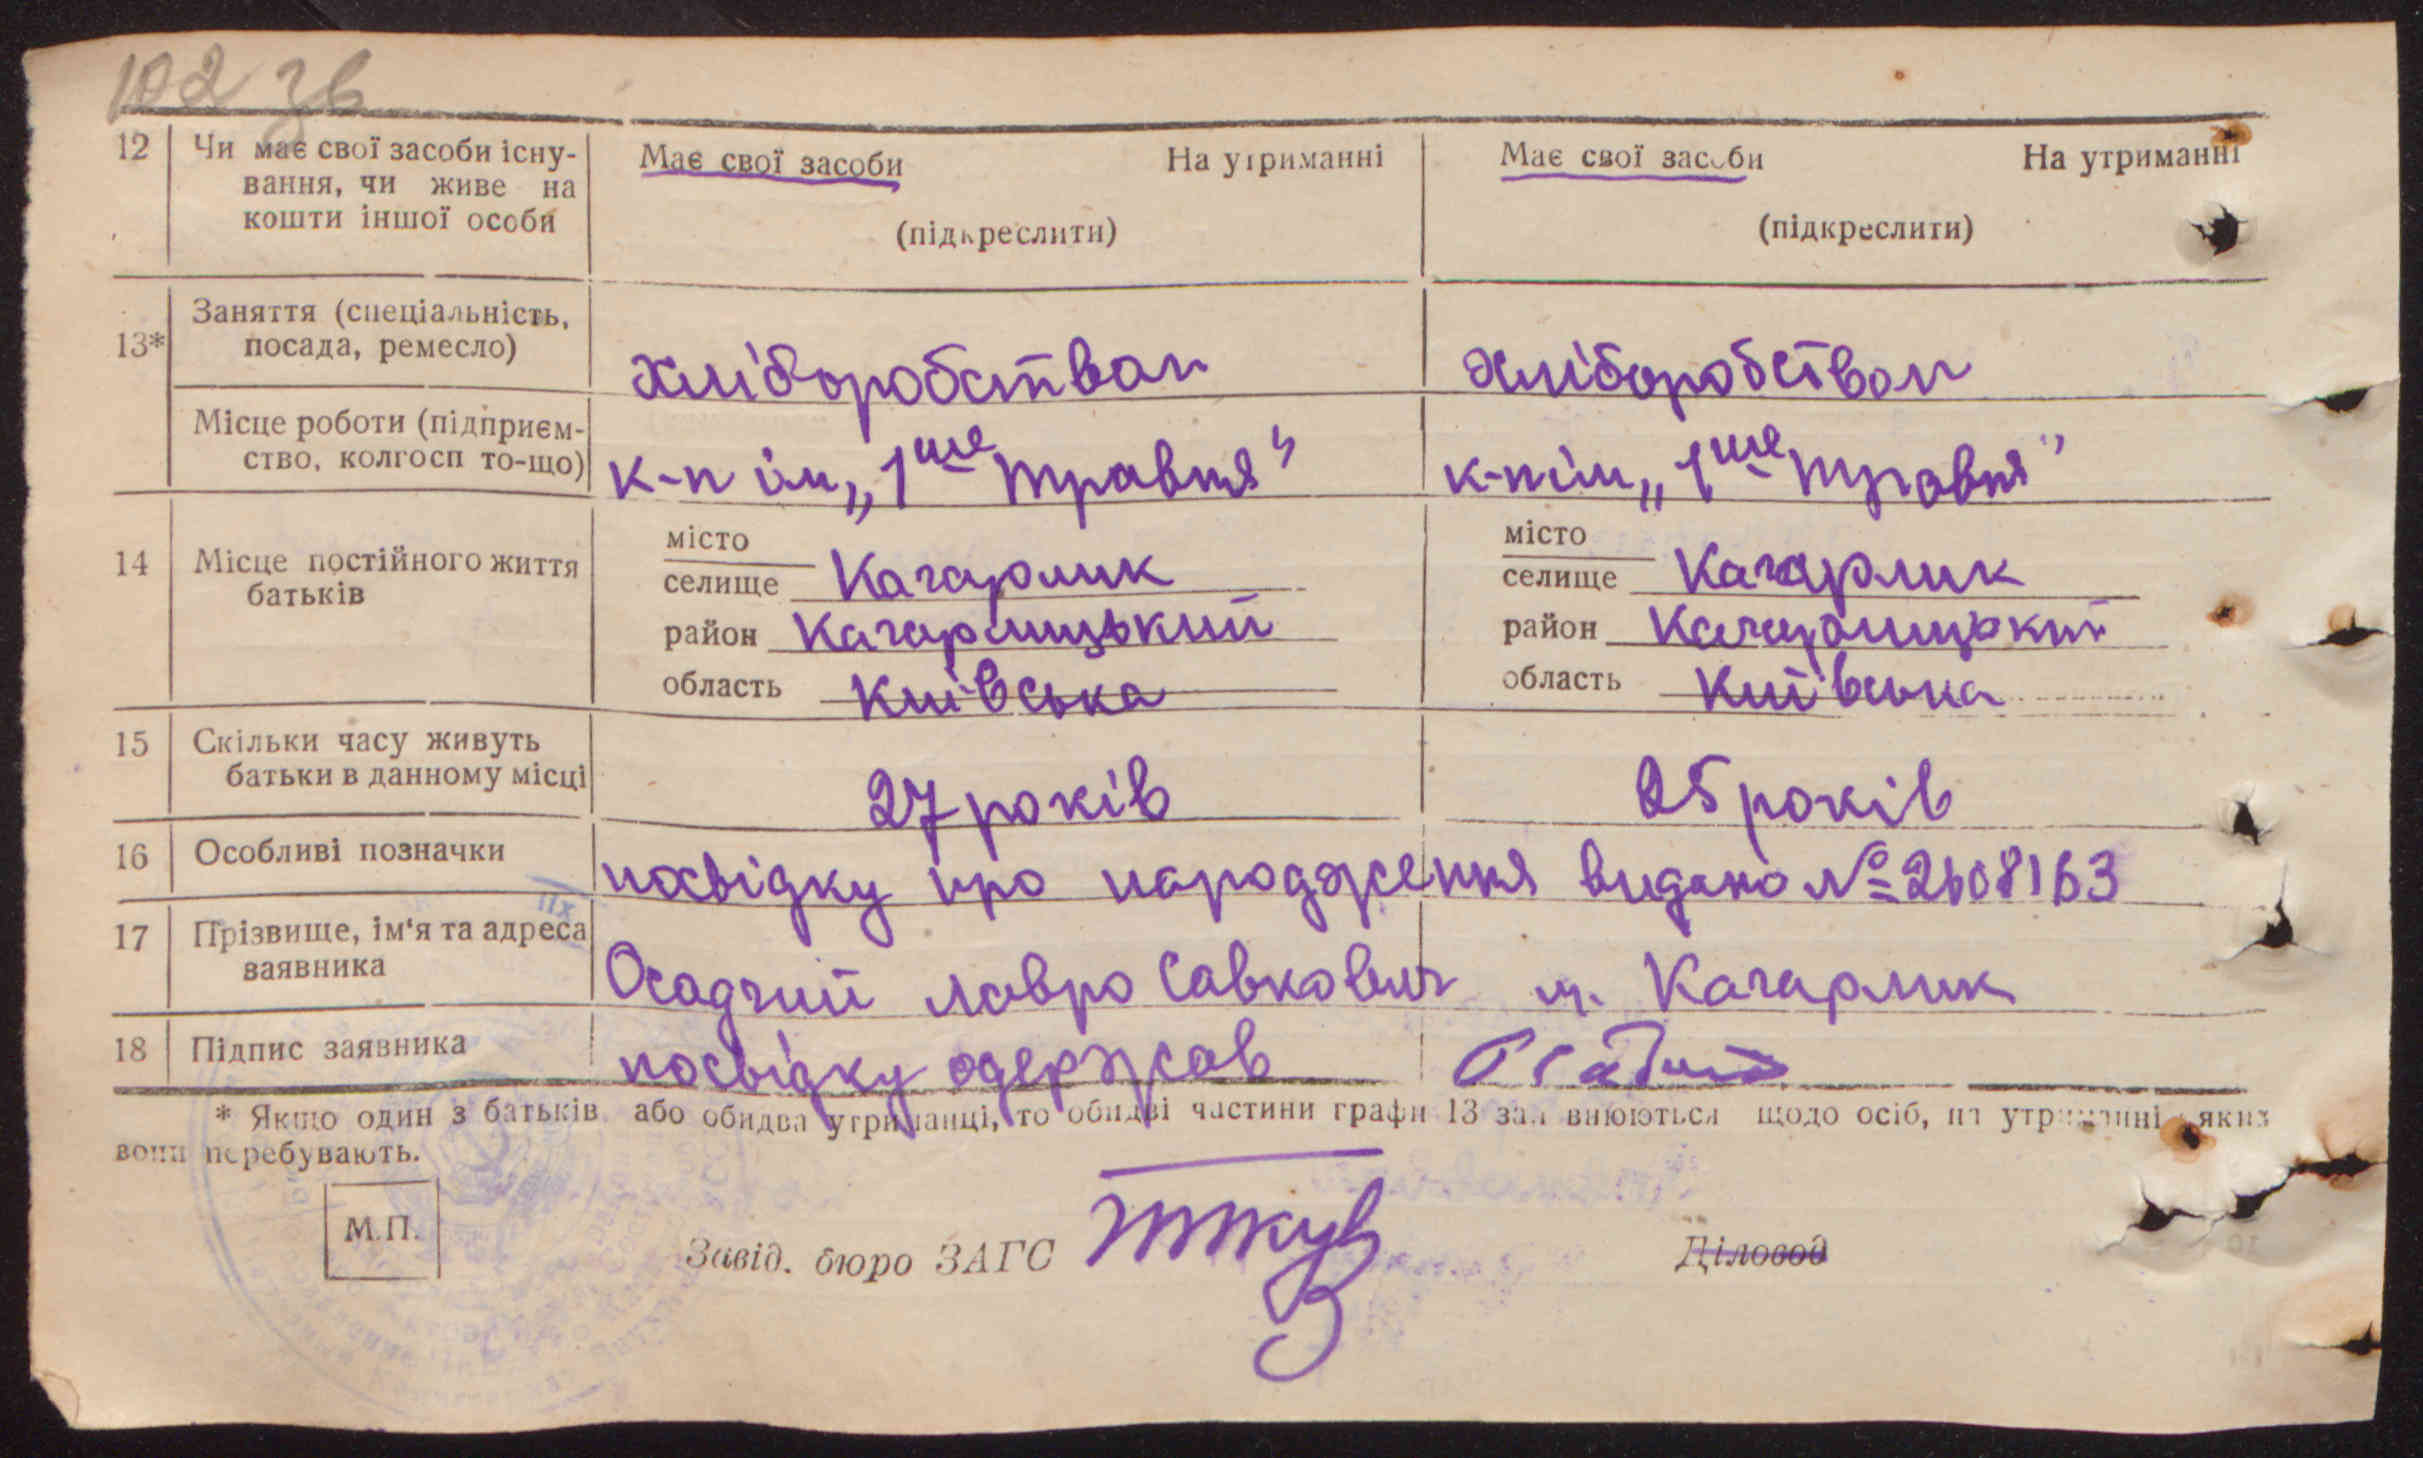 102 зв
12 Чи має свої засоби існу- Має свої засоби На утриманні Має свої засоби На утриманні
вання, чи живе на
кошти іншої особи (підкреслити) (підкреслити)
Заняття (спеціальність,
13* посада, ремесло) хліборобством хліборобством
Місце роботи (підприєм-
ство, колгосп то-що) к-п ім „1ше травня" к-п ім „1ше травня"
місто місто
14 Місце постійного життя селище Кагарлик селище Кагарлик
батьків район Кагарлицький район Кагарлицький
область Київська область Київська
15 Скільки часу живуть
батьки в данному місці 27 років 25 років
16 Особливі позначки посвідку про народження видано № 2608163
ПХ
17 Прізвище, ім'я та адреса
заявника Осадчий Лавро Савкович м. Кагарлик
18 Підпис заявника посвідку одержав Осадчий
* Якщо один з батьків або обидва утриманці, то обидві частини графи 13 заповнюються щодо осіб, на утриманні яких
вони перебувають.
М.П.
Завід. бюро ЗАГС Діловод